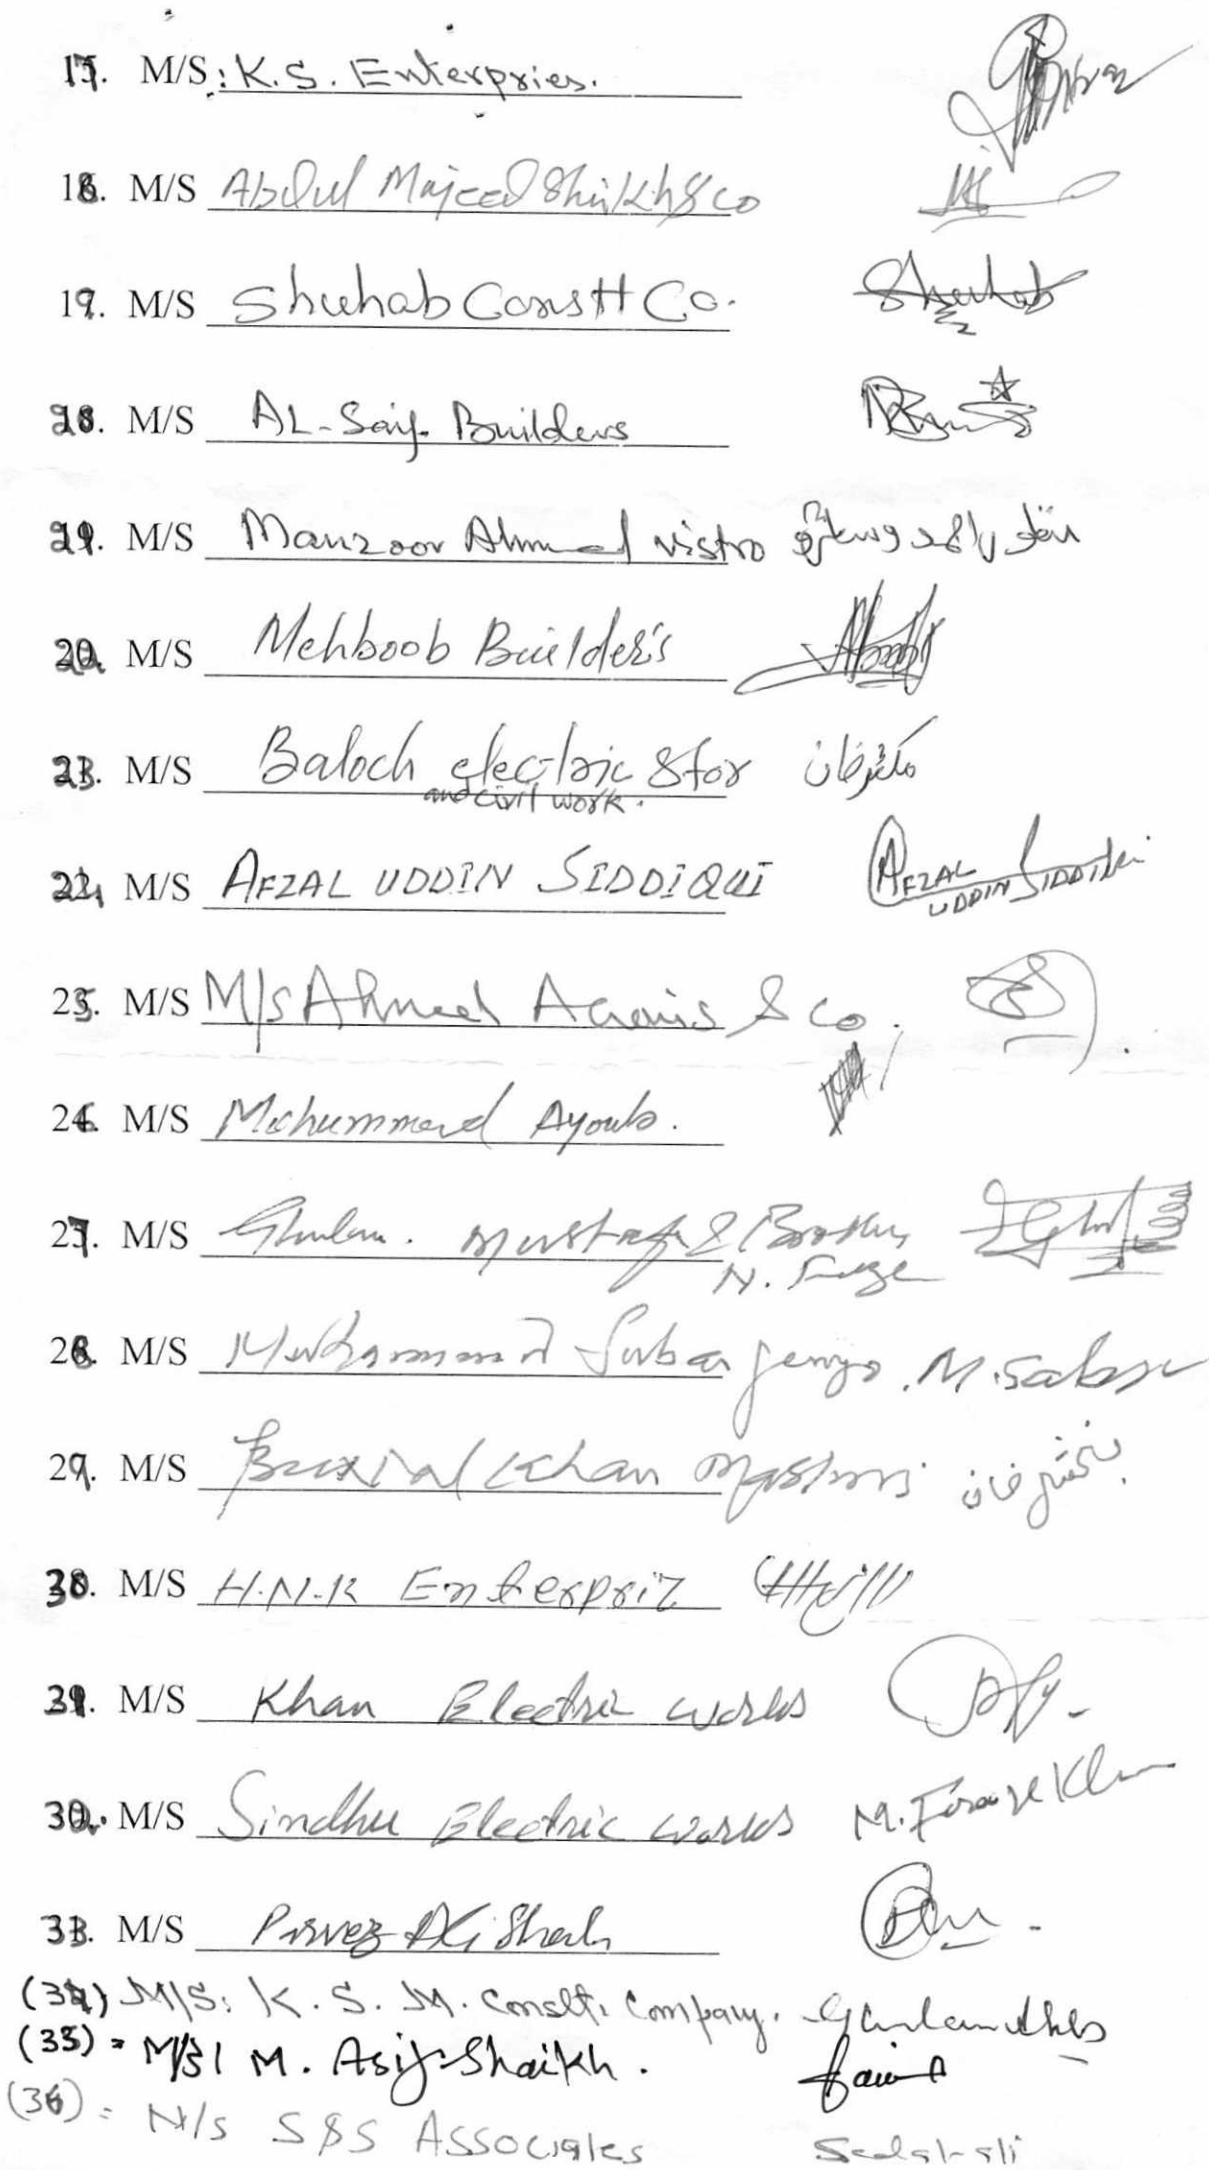 17. M/S: K.S. Enterpries.
18. M/S Abdul Majeed Shaikh & co
19. M/S Shuhab Constt Co. Shuhab
20. M/S AL-Saif Builders
21. M/S Manzoor Ahmed vistro
22. M/S Mehboob Builder's
23. M/S Baloch electric Stor
and civil work.
24. M/S AFZAL UDDIN SIDDIQUI AFZAL UDDIN SIDDIQUI
25. M/S M/S Ahmed & co.
26. M/S Mohummad Ayoub.
27. M/S Ghulam. Mustafa & Brothers
28. M/S Muhammad M. Sabar
29. M/S Khan
30. M/S H.N.K Enterpriz
31. M/S Khan Electric works
32. M/S Sindhu Electric works M. Khan
33. M/S Pervez Ali Shah
(34) M/S: K. S. M. Constt: Company.
(35) = M/S M. Asif Shaikh.
(36) = M/s S&S Associates